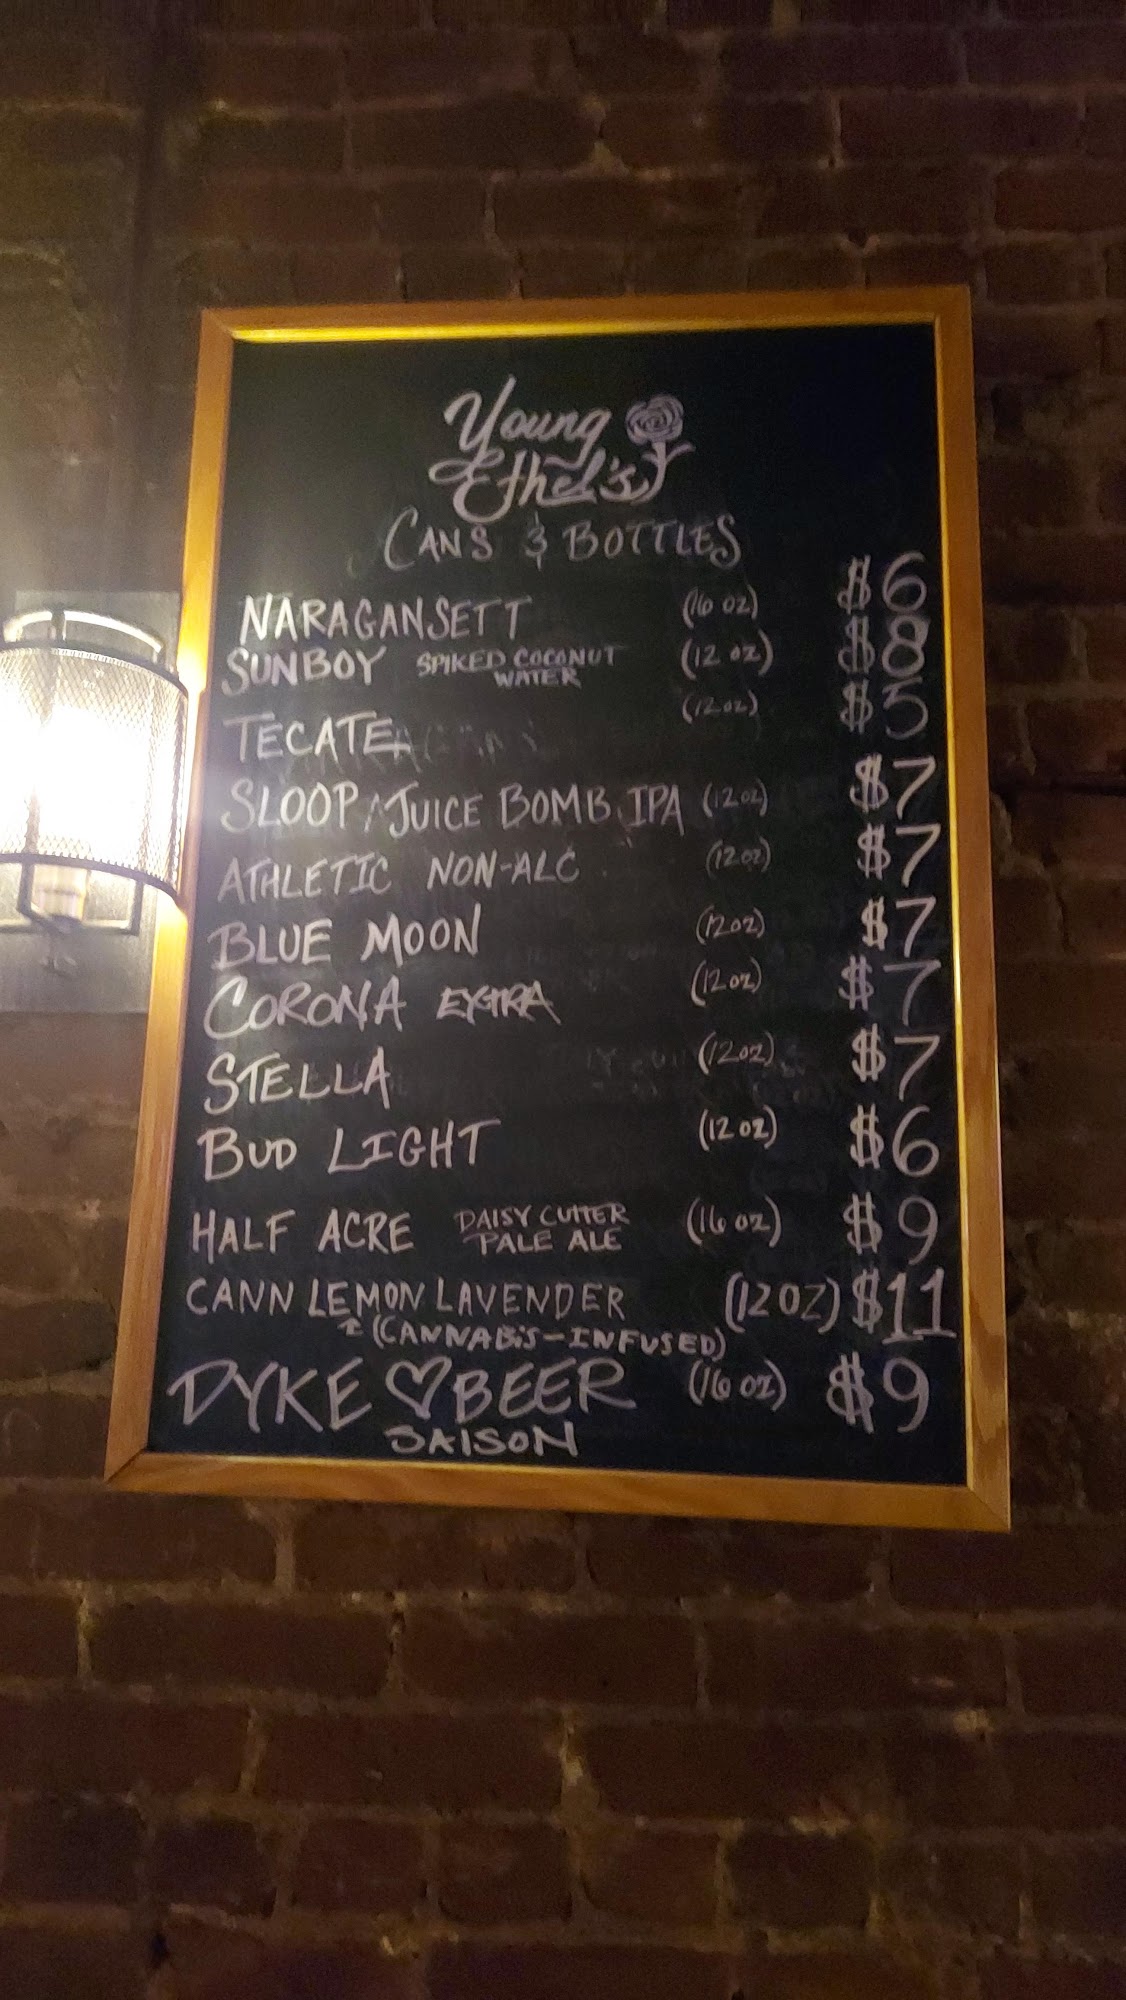 Young
Ethel's
CANS & BOTTLES
NARAGANSETT (16 oz) $6
SUNBOY SPIKED COCONUT WATER (12 oz) $8
TECATE (12oz) $5
SLOOP JUICE BOMB IPA (12oz) $7
ATHLETIC NON-ALC (12oz) $7
BLUE MOON (12oz) $7
CORONA EXTRA (12oz) $7
STELLA (12oz) $7
BUD LIGHT (12 oz) $6
HALF ACRE DAISY CUTTER PALE ALE (16 oz) $9
CANN LEMON LAVENDER (12 OZ) $11
(CANNABIS-INFUSED)
DYKE ♡ BEER (16 oz) $9
SAISON